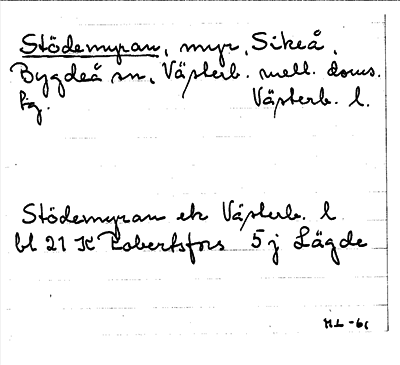 Stödemyran, myr, Sikeå,
Bygdeå sn, Västerb. mell. doms.
tg. Västerb. l.
Stödemyran ek Västerb. l
bl 21 K Robertsfors 5 j Lägde
ML -61